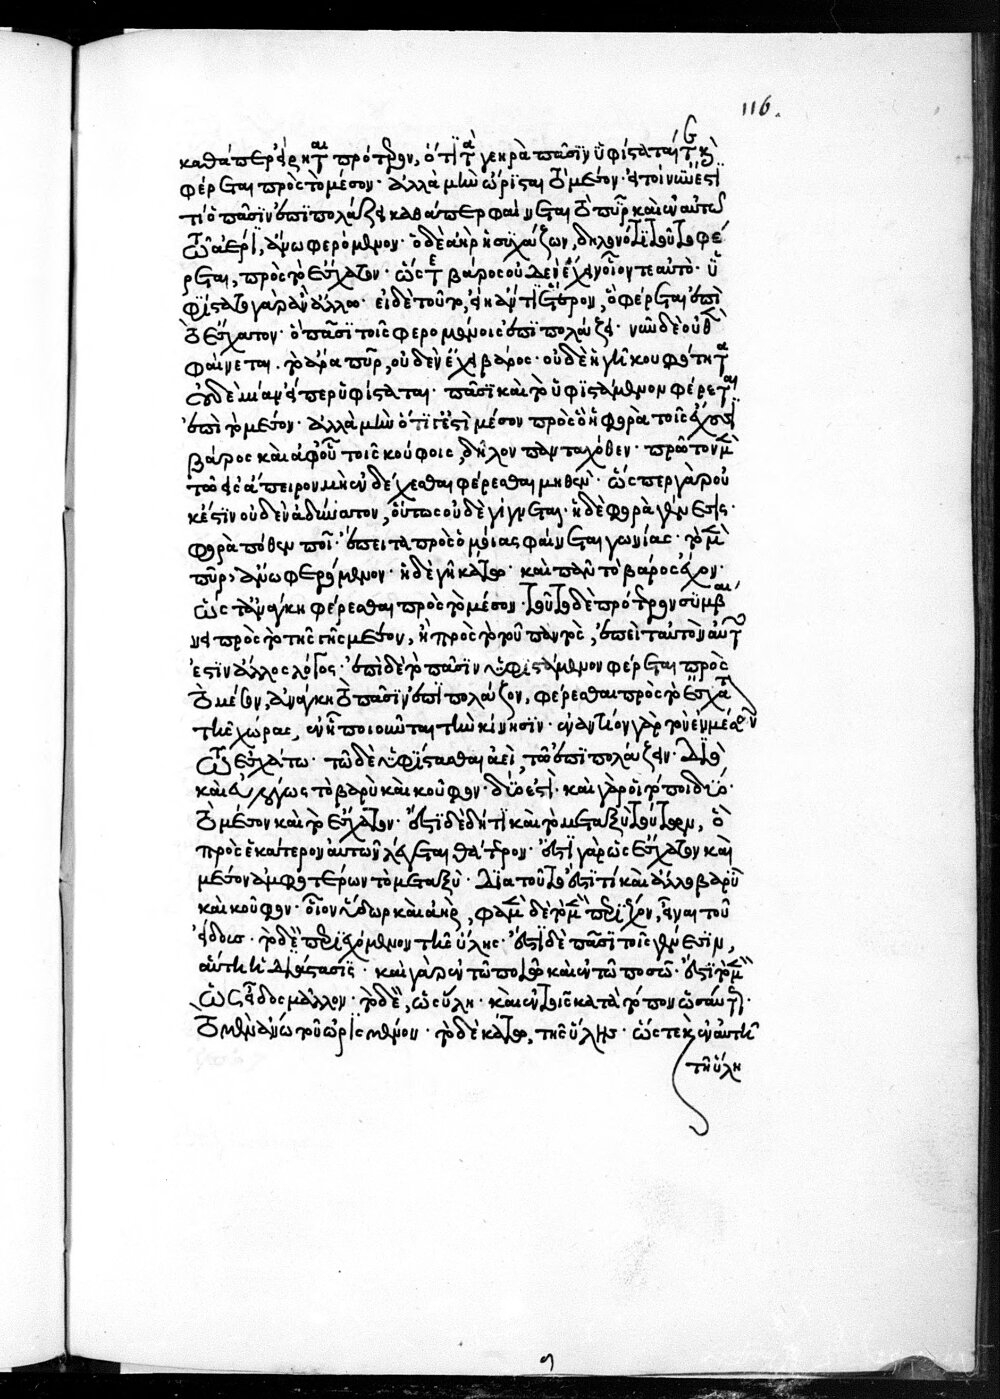 καθάπερ εἴρηται πρότερον, ὅτι τὰ γεηρὰ πᾶσιν ὑφίσταται καὶ
φέρεται πρὸς τὸ μέσον· ἀλλὰ μὴν ὥρισται τὸ μέσον· εἰ τοίνυν ἐστί
τι ὃ πᾶσιν ἐπιπολάζει καθάπερ φαίνεται τὸ πῦρ καὶ ἐν αὐτῶ
τῶ ἀέρι, ἄνω φερόμενον· ὁ δὲ ἀὴρ ἡσυχάζων, δῆλον ὅτι τοῦτο φέ
ρεται, πρὸς τὸ ἔσχατον· ὥστε βάρος οὐδὲν ἔχειν οἷόν τε αὐτό· ὑ
φίστατο γὰρ ἂν ἄλλω· εἰ δὲ τοῦτο, εἴη ἄν τι ἕτερον, ὃ φέρεται ἐπὶ
τὸ ἔσχατον· ὃ πᾶσι τοῖς φερομένοις ἐπιπολάζει· νῦν δὲ οὐθὲν
φαίνεται· τὸ ἄρα πῦρ, οὐδὲν ἔχει βάρος· οὐδὲ ἡ γῆ κουφότητα
οὐδεμίαν εἴπερ ὑφίσταται πᾶσι καὶ τὸ ὑφιστάμενον φέρεται
ἐπὶ τὸ μέσον· ἀλλὰ μὴν ὅτι γ᾽ ἐστὶ μέσον πρὸς ὃ ἡ φορὰ τοῖς ἔχουσι
βάρος καὶ ἀφ᾽ οὗ τοῖς κούφοις, δῆλον πανταχόθεν· πρῶτον μὲν
τῶ εἰς ἄπειρον μὴ ἐνδέχεσθαι φέρεσθαι μηθέν· ὥσπερ γὰρ οὐ
κ ἔστιν οὐδὲν ἀδύνατον, οὕτως οὐδὲ γίγνεται· ἡ δὲ φορὰ γένεσις·
φορὰ πόθεν ποῖ· ἔπειτα πρὸς ὁμοίας φαίνεται γωνίας· τὸ μὲν
πῦρ, ἄνω φερόμενον· ἡ δὲ γῆ κάτω· καὶ πᾶν τὸ βάρος ἔχον·
ὥστ᾽ ἀνάγκη φέρεσθαι πρὸς τὸ μέσον· τοῦτο δὲ πρότερον συμβαί
νει πρὸς τὸ τῆς γῆς μέσον, ἢ πρὸς τὸ τοῦ παντός, ἐπεὶ ταὐτὸν αὐτῶν
ἐστιν ἄλλος λόγος· ἐπεὶ δὲ τὸ πᾶσιν ὑφιστάμενον φέρεται πρὸς
τὸ μέσον, ἀνάγκη τὸ πᾶσιν ἐπιπολάζον, φέρεσθαι πρὸς τὸ ἔσχατον
τῆς χώρας, ἐν ἧ ποιοῦνται τὴν κίνησιν· ἐναντίον γὰρ τὸ μὲν μέσον
τῶ ἐσχάτω· τῶ δὲ ὑφίστασθαι ἀεὶ, τὸ ἐπιπολάζειν· διὸ
καὶ εὐλόγως τὸ βαρὺ καὶ κοῦφον· δύο ἐστί· καὶ γὰρ οἱ τόποι δύο·
τὸ μέσον καὶ τὸ ἔσχατον· ἔστι δὲ δή τι καὶ τὸ μεταξὺ τούτων, ὃ
πρὸς ἑκάτερον αὐτῶν λέγεται θάτερον· ἔστι γὰρ ὡς ἔσχατον καὶ
μέσον ἀμφοτέρων τὸ μεταξύ· διὰ τοῦτο ἔστι τί καὶ ἄλλο βαρὺ
καὶ κοῦφον· οἷον ὕδωρ καὶ ἀήρ, φαμὲν δὲ τὸ μὲν περιέχον, εἶναι τοῦ
εἴδους· τὸ δὲ περιεχόμενον τῆς ὕλης· ἔστι δὲ πᾶσι τοῖς γένεσιν,
αὕτη ἡ διάστασις· καὶ γὰρ ἐν τῶ ποιῶ καὶ ἐν τῶ ποσῶ· ἔστι τὸ μὲν
ὡς εἶδος μᾶλλον· τὸ δὲ, ὡς ὕλη· καὶ ἐν τοῖς κατὰ τόπον ὡσαύτως·
τὸ μὲν ἄνω τοῦ ὡρισμένου· τὸ δὲ κάτω, τῆς ὕλης· ὥστε καὶ ἐν αὐτῆ
τῆ ὕλη
116.